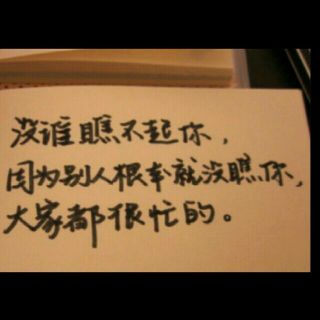 没谁瞧不起你，
因为别人根本就没瞧你，
大家都很忙的。